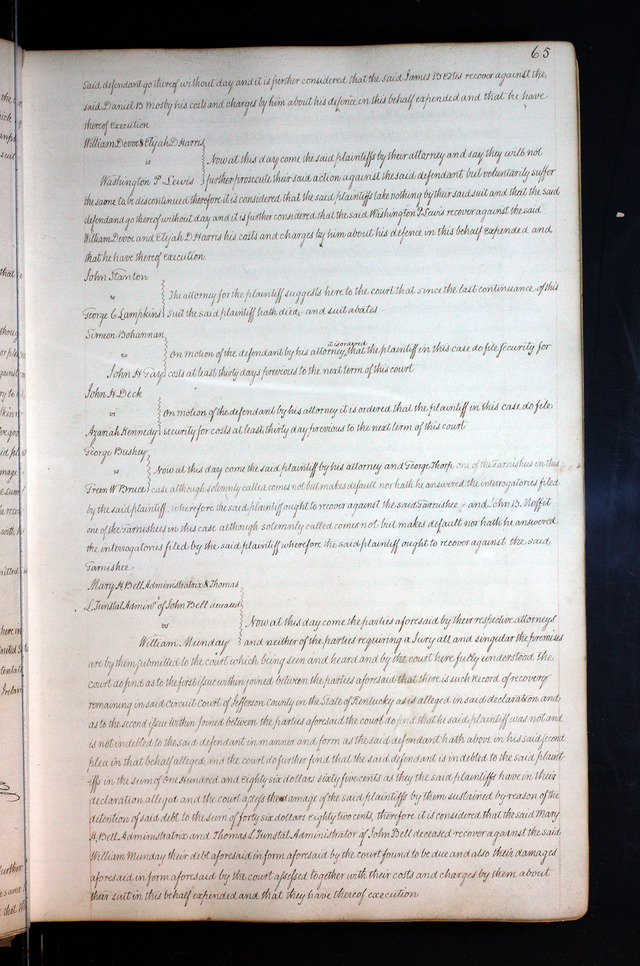 65
said defendant go thereof without day and it is further considered that the said James B Estes recover against the
said Daniel B Mosby his costs and charges by him about his defence in this behalf expended and that he have
thereof execution
William Devoe & Elijah D Harris
vs Now at this day come the said plaintiffs by their attorney and say they will not
Washington P Lewis further prosecute their said action against the said defendant but voluntarily suffer
the same to be discontinued therefore it is considered that the said plaintiffs take nothing by their said suit and that the said
defendand go thereof without day and it is further considered that the said Washington P Lewis recover against the said
William Devoe and Elijah D Harris his costs and charges by him about his defence in this behalf expended and
that he have thereof execution.
John Stanton
vs The attorney for the plaintiff suggests here to the court that since the last continuance of this
George C Lampkins Suit the said plaintiff hath died, and suit abates
Simeon Bohannan
vs On motion of the defendant by his attorney it is ordered that the plaintiff in this case do file security for
John H Gay costs at least thirty days previous to the next term of this court
John H Deck
vs On motion of the defendant by his attorney it is ordered that the plaintiff in this case do file
Azariah Kennedy security for costs at least thirty day previous to the next term of this court
George Buskey
vs Now at this day come the said plaintiff by his attorney and George Thorp one of the Garnishees in this
Green W Bruce case although solemnly called comes not but makes default nor hath he answered the interrogatories filed
by the said plaintiff, wherefore the said plaintiff ought to recover against the said Garnishee, and John B. Moffit
one of the Garnishees in this case although solemnly called comes not but makes default nor hath he answered
the interrogatories filed by the said plaintiff wherefore the said plaintiff ought to recover against the said
Garnishee
Mary H Bell Administratrix & Thomas
L. Tunstal Adminr of John Bell deceased
vs Now at this day come the parties aforesaid by their respective attorneys
William Munday and neither of the parties requiring a Jury all and singular the premises
are by them submitted to the court which being seen and heard and by the court here fully understood the
court do find as to the first issue within joined between the parties aforesaid that there is such Record of recovery
remaining in said circuit Court of Jefferson County in the State of Kentucky as is alleged in said declaration and
as to the second issue within joined between the parties aforesaid the court do find that he said plaintiff was not and
is not indebted to the said defendant in manner and form as the said defendant hath above in his said second
plea in that behalf alleged, and the court do further find that the said defendant is indebted to the said plaint-
iffs in the sum of One Hundred and eighty six dollars sixty five cents as they the said plaintiffs have in their
declaration alleged and the court assess the damage of the said plaintiffs by them sustained by reason of the
detention of said debt to the sum of forty six dollars eighty two cents, therefore it is considered that the said Mary
H, Bell Administratrix and Thomas L Tunstal Administrator of John Bell deceased recover against the said
William Munday their debt aforesaid in form aforesaid by the court found to be due and also their damages
aforesaid in form aforesaid by the court assessed together with their costs and charges by them about
their suit in this behalf expended and that they have thereof execution